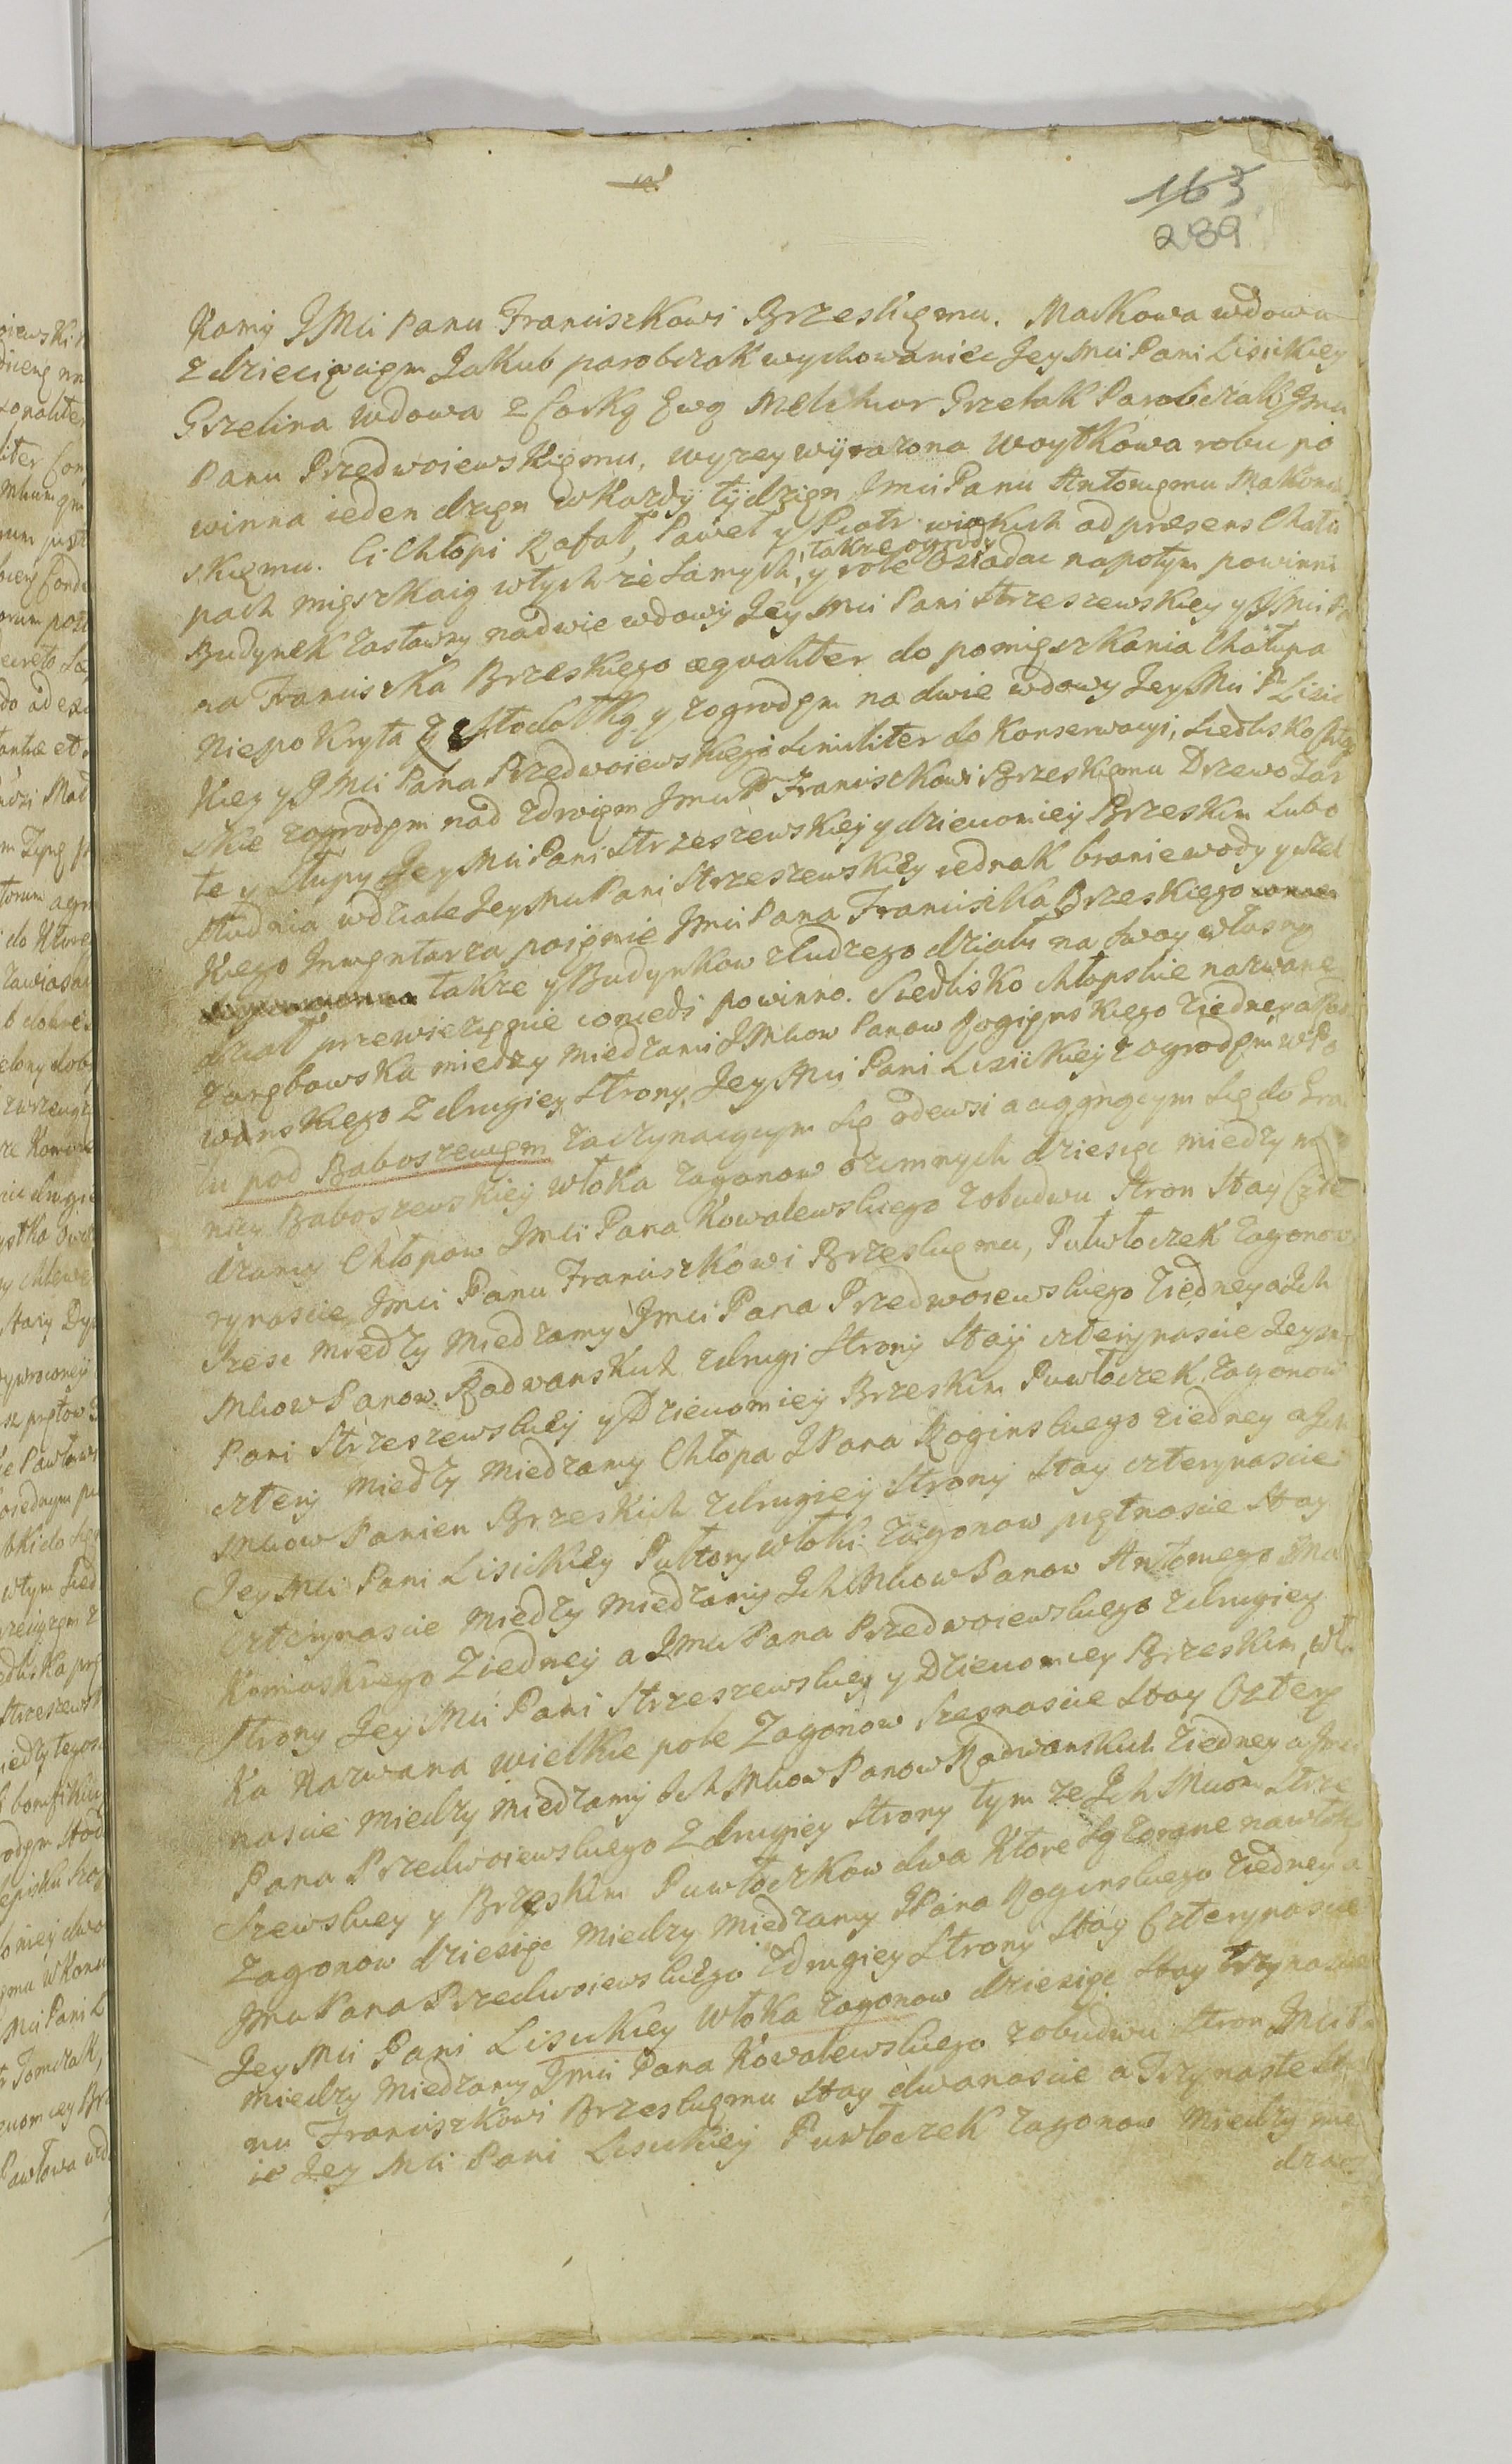 163
289
Kamy JMci Panu Franciszkowi Brzeskięmu. Maćkowa wdowa
z dziecięcięm Jakub parobczak wychowaniec JeyMci Pani Lisickiey
Grzelina wdowa z Corką Ewą Melchior Grzelak Parobczak Jmci
Panu Przedwoiewskięmu, wyzey wyrazona Woytkowa robic po
winna ieden dzięn w Kazdy tydzięn Jmci Panu Antonięmu Makomo
skięmu. Ci Chłopi Rafał, Paweł y Piotr w iakich ad præsens Chału
pach mięszkaią w tych ze samych, y role osiadac napotym powinni
takze ogrody
Budynek zastawny na dwie wdowy Jey Mci Pani Strzeszewskiey y JMci Pa
na Franciszka Brzeskiego æqualiter do pomięszkania Chałupa
niepokryta z Stodołką y zogrodęm na dwie wdowy JeyMci P. Lisic
Kiey y JMci Pana Przedwoiewskiego similiter do Konserwacyi, Siedlisko Chłop
skie zogrodęm nad zdroięm Jmci P. Franciszkowi Brzeskięmu Drzewo Zar
te y Słupy Jey Mci Pani Strzeszewskiey y dzieciom iey Brzeskim Lubo
Studnia w dziale Jey Mci Pani Strzeszewskiey iednak branie wody y
Kiego Inwęntarza poięnie Jmci Pana Franciszka Brzeskiego
takze y Budynkow z Cudzego działu na swoy własny
dział przewiezięnie concedi powinno. Siedlisko chłopskie nazwane
Zarębowska miedzy miedzami JMciow Panow Rogięnskiego ziedney a Rad
wanskiego z drugiey Strony, Jey Mci Pani Lisickiey z ogrodęm w Po
lu pod Baboszewęm zaczynaiącym się odewsi a ciągnącym się do Gra
nicy Baboszewskiey włoka zagonow ozimnych dziesięc miedzy mie
dzamy Chłopow Jmci Pana Kowalewskiego zobudwu Stron Stay Czte
rynascie Jmci Panu Franciszkowi Brzeskięmu, Pułwłoczek zagonow
Szesc miedzy miedzamy Jmci Pana Przedwoiewskiego ziedney a Ich
Mciow Panow Radwanskich z drugi Strony Stay czterynascie Jey Mci
Pani Strzeszewskiey y Dzieciom iey Brzeskim Puwłoczek zagonow
cztery miedzy miedzamy Chłopa JPana Roginskiego ziedney a Ich
Mciow Panien Brzeskich z drugiey Strony Stay czterynascie
Jey Mci Pani Lisickiey Pułtory włoki zagonow piętnascie Stay
czterynascie miedzy miedzamy Ich Mciow Panow Antoniego Ma
Komaskiego ziedney a Jmci Pana Przedwoiewskiego z drugiey
Strony Jey Mci Pani Strzeszewskiey y Dzieciom iey Brzeskim, wło
Ka Nazwana wielkie pole Zagonow Szesnascie Stay Cztery
nascie miedzy miedzamy Ich Mciow Panow Radwanskich ziedney a Jmci
Pana Przedwoiewskiego z drugiey Strony tym ze Ich Mciom Strze
Szewskiey y Brzeskim Puwłoczkow dwa Ktore są zorane na włokę
Zagonow dziesięc miedzy miedzamy JPana Roginskiego ziedney a
Jmci Pana Przedwoiewskiego zdrugiey Strony Stay Czterynascie
Jey Mci Pani Lisickiey Włoka zagonow dziesięc Stay Trzynascie
miedzy miedzamy Jmci Pana Kowalewskiego zobudwu Stron Jmci Pa
nu Franciszkowi Brzeskięmu Stay dwanascie a Trzynaste Sta
ie Jey Mci Pani Lisickiey Puwłoczek zagonow miedzy mie
dzamy